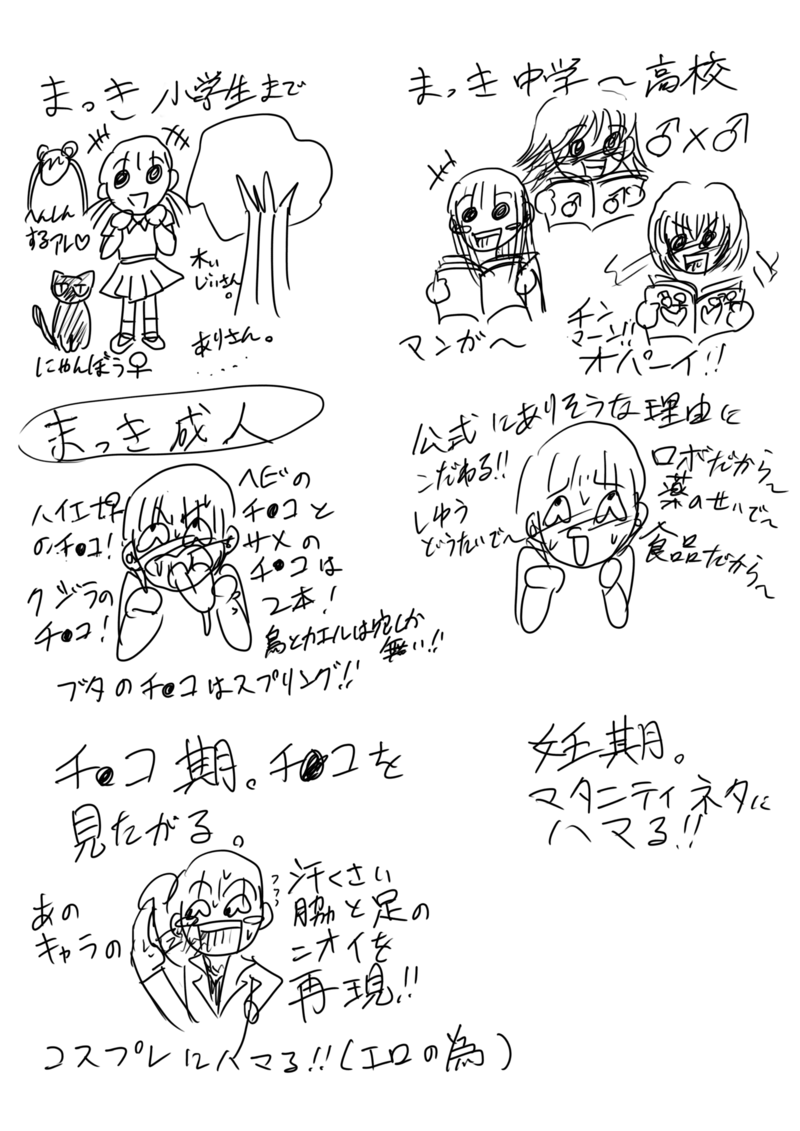 まっき 小学生まで
へんしん
するアレ♡
木ぃ
じぃさん。
ありさん。
‥‥‥
にゃんぼう♀
まっき 中学〜高校
♂×♂
♂ ♂
マンガ〜
チン
マーン!!
オパーイ!!
まっき 成人
ハイエナ
のチ●コ!
クジラの
チ●コ!
ヘビの
チ●コと
サメの
チ●コは
2本!
鳥とカエルは穴しか
無い!!
ブタのチ●コはスプリング!!
公式にありそうな理由に
こだわる!!
しゅう
どうたいで〜
ロボだから〜
薬のせいで〜
食品だから〜
チ●コ期。チ●コを
見たがる。
妊期。
マタニティネタに
ハマる!!
あの
キャラの
フフフ
汗くさい
脇と足の
ニオイを
再現!!
コスプレにハマる!!(エロの為)